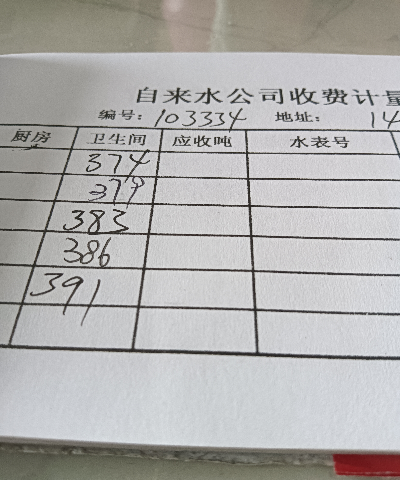 自来水公司收费计量
编号: 103334 地址: 14
厨房 卫生间 应收吨 水表号
374
379
383
386
391